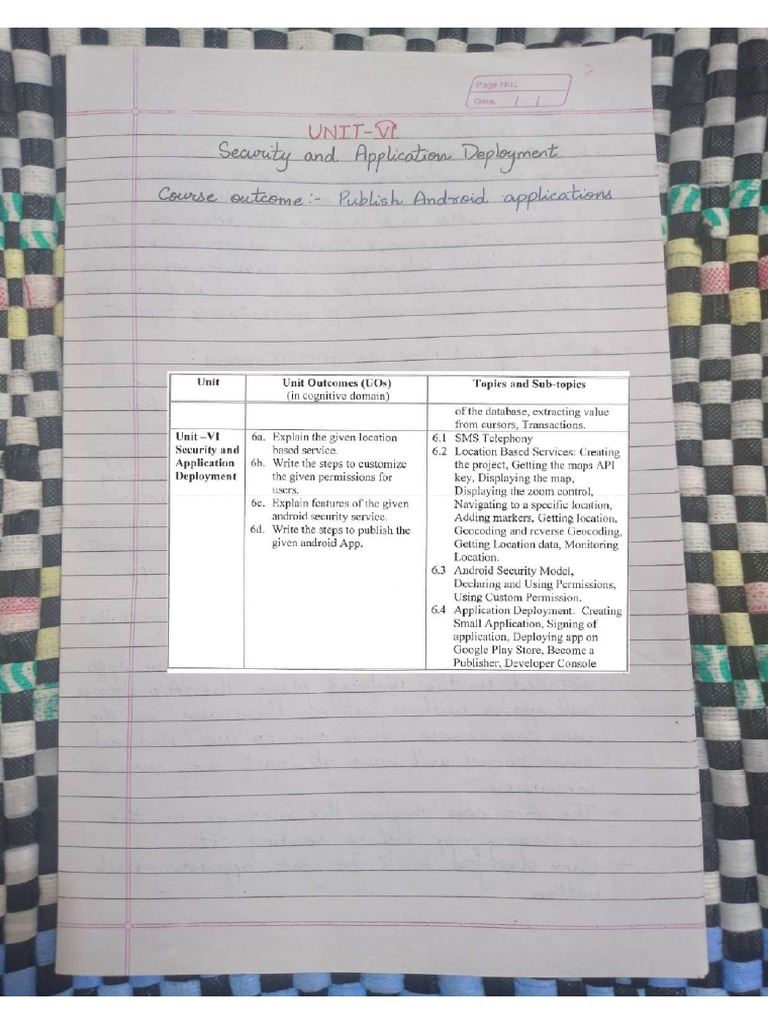 Page No.:
Date. / /
UNIT-VI
Security and Application Deployment
Course outcome:- Publish Android applications
Unit
Unit Outcomes (UOs)
(in cognitive domain)
Topics and Sub-topics
of the database, extracting value
from cursors, Transactions.
Unit –VI
Security and
Application
Deployment
6a. Explain the given location
based service.
6b. Write the steps to customize
the given permissions for
users.
6c. Explain features of the given
android security service.
6d. Write the steps to publish the
given android App.
6.1 SMS Telephony
6.2 Location Based Services: Creating
the project, Getting the maps API
key, Displaying the map,
Displaying the zoom control,
Navigating to a specific location,
Adding markers, Getting location,
Geocoding and reverse Geocoding,
Getting Location data, Monitoring
Location.
6.3 Android Security Model,
Declaring and Using Permissions,
Using Custom Permission.
6.4 Application Deployment: Creating
Small Application, Signing of
application, Deploying app on
Google Play Store, Become a
Publisher, Developer Console